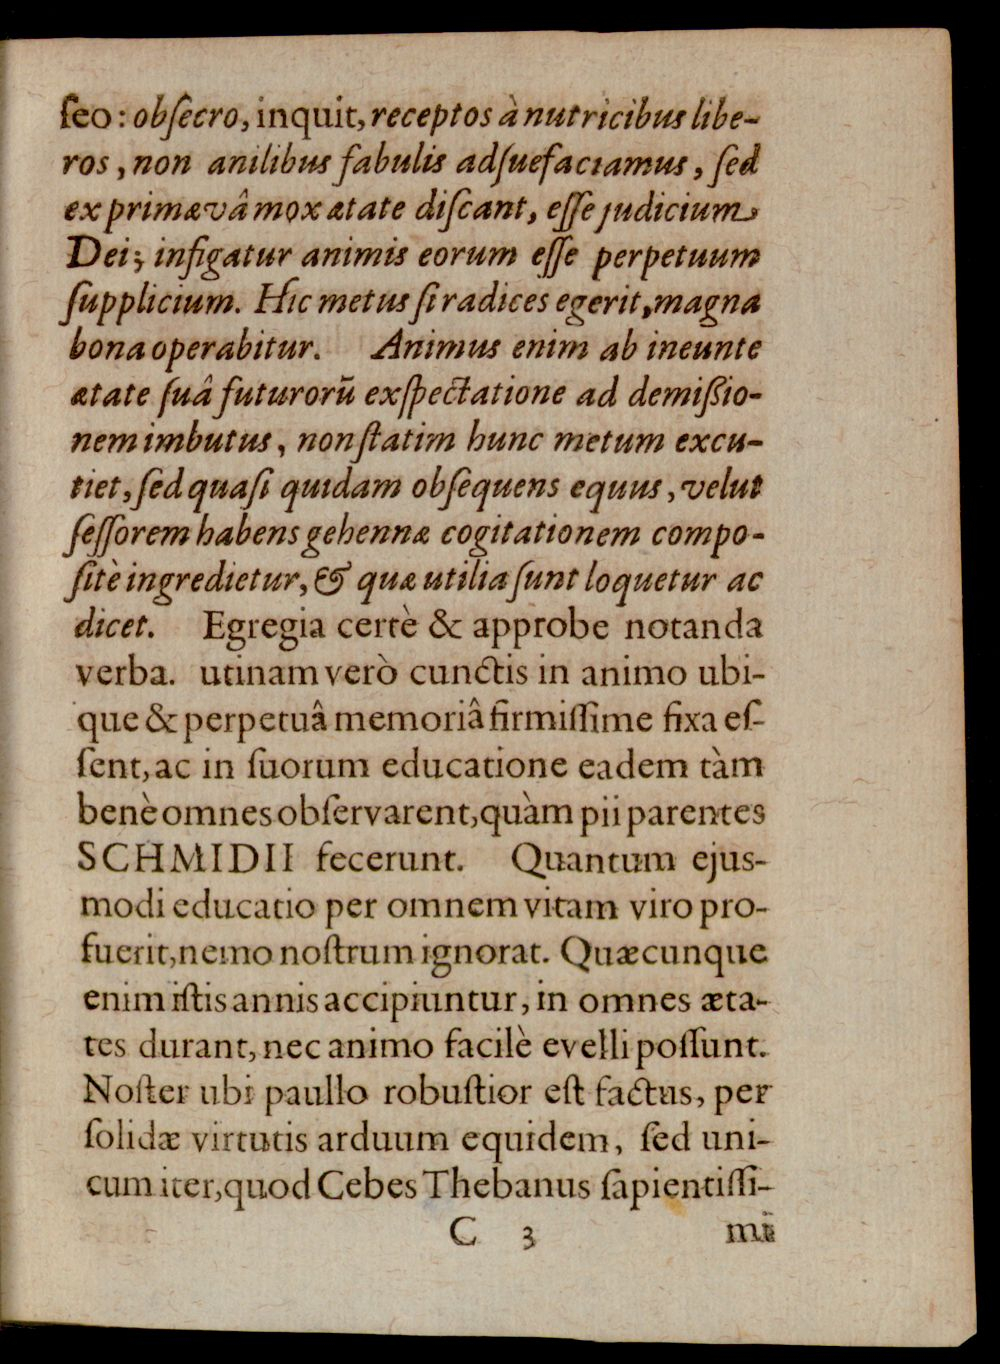 ſeo: obſecro, inquit, receptos à nutricibus libe-
ros, non anilibus fabulis adſuefaciamus, ſed
ex primævâ mox ætate diſcant, eſſe judicium
Dei; infigatur animis eorum eſſe perpetuum
ſupplicium. Hic metus ſi radices egerit, magna
bona operabitur. Animus enim ab ineunte
ætate ſuâ futurorū exſpectatione ad demiſſio-
nem imbutus, non ſtatim hunc metum excu-
tiet, ſed quaſi quidam obſequens equus, velut
ſeſſorem habens gehennæ cogitationem compo-
ſitè ingredietur, & quæ utilia ſunt loquetur ac
dicet. Egregia certè & approbe notanda
verba. utinam verò cunctis in animo ubi-
que & perpetuâ memoriâ firmiſſime fixa eſ-
ſent, ac in ſuorum educatione eadem tàm
benè omnes obſervarent, quàm pii parentes
SCHMIDII fecerunt. Quantum ejus-
modi educatio per omnem vitam viro pro-
fuerit, nemo noſtrum ignorat. Quæcunque
enim iſtis annis accipiuntur, in omnes æta-
tes durant, nec animo facilè evelli poſſunt.
Noſter ubi paullo robuſtior eſt factus, per
ſolidæ virtutis arduum equidem, ſed uni-
cum iter, quod Cebes Thebanus ſapientiſſi-
C 3 mi